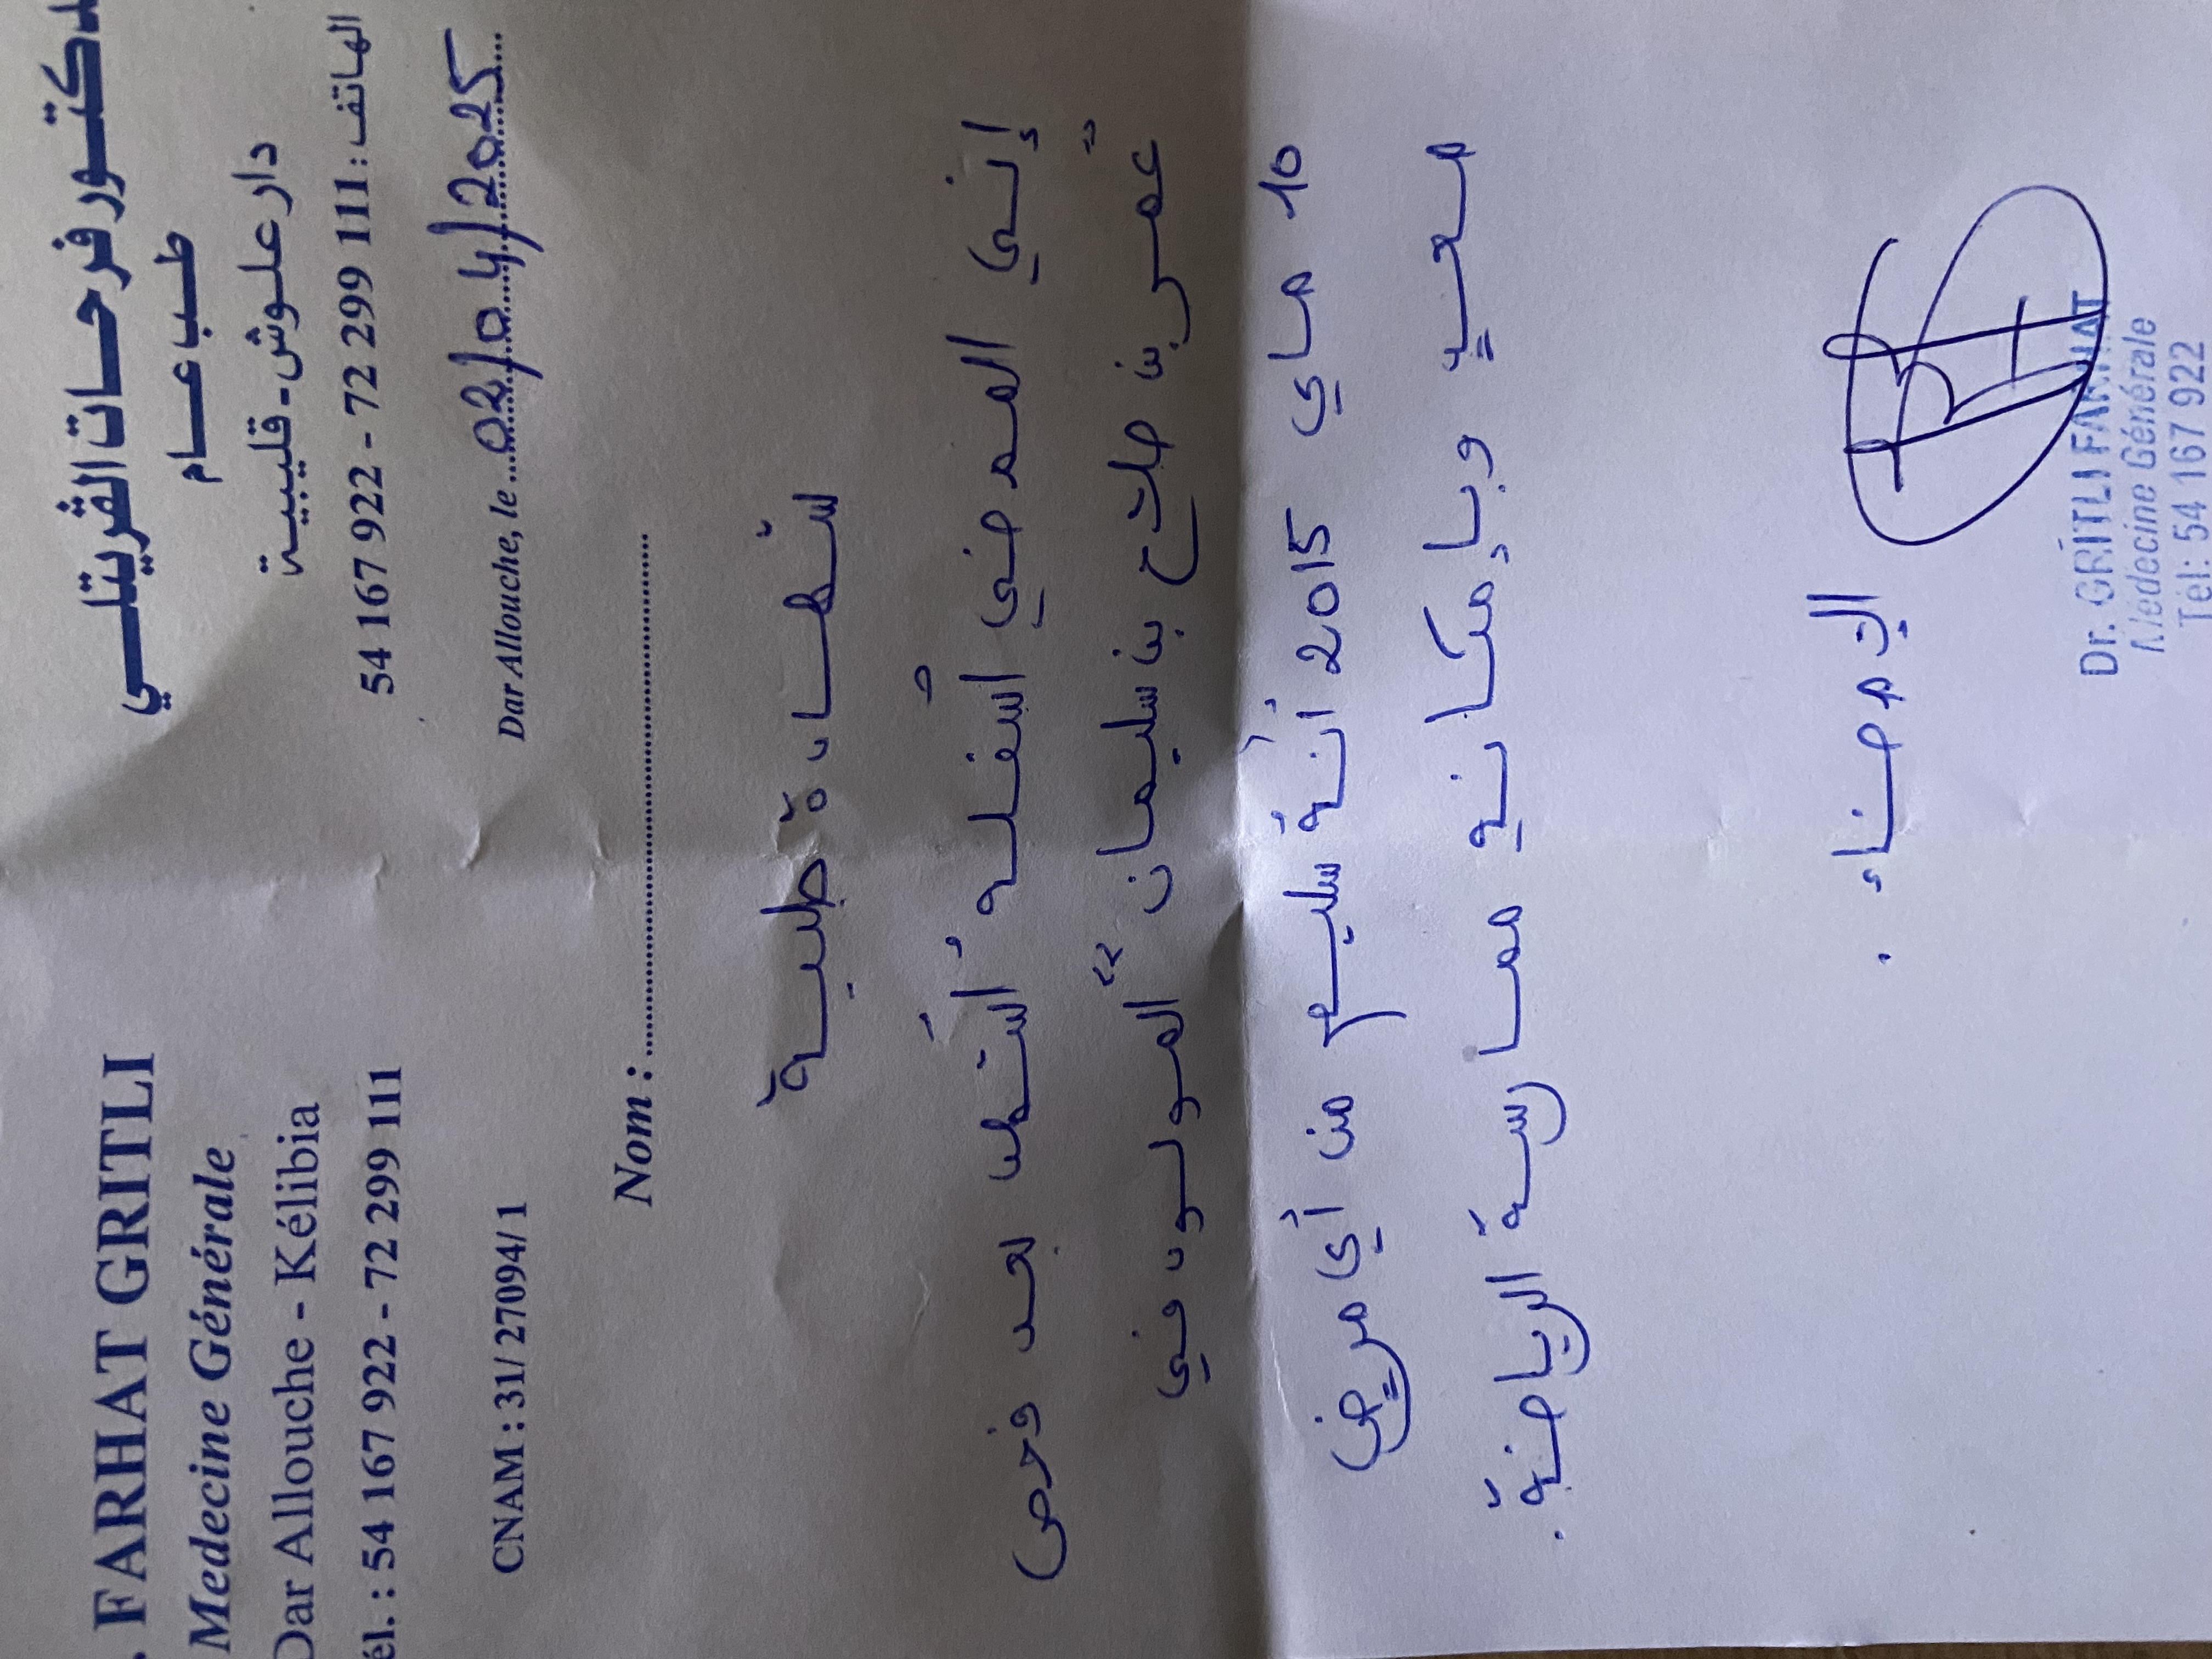 . FARHAT GRITLI
Medecine Générale
Dar Allouche - Kélibia
él. : 54 167 922 - 72 299 111
CNAM : 31/ 27094/ 1
دكتور فرحات القريتلي
طب عام
دار علوش - قليبية
الهاتف : 111 299 72 - 922 167 54
Dar Allouche, le ... 02/04/2025
Nom : ..........
شهادة طبية
إنني الممضي أسفله أشهد بعد فحص
عمر بن صالح بن سليمان المولود في
10 ماي 2015 أنه سليم من أي مريض
معدي وبإمكانه ممارسة الرياضة.
الإمضاء.
Dr. GRITLI FARHAT
Médecine Générale
Tél: 54 167 922